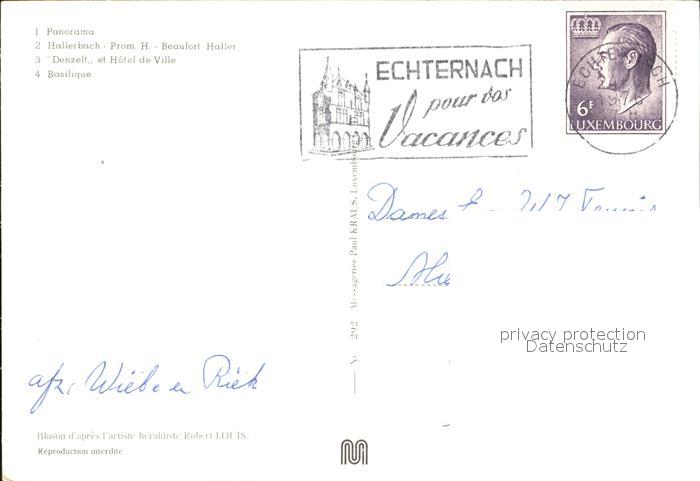 1 Panorama
2 Hallerbach - Prom. H. - Beaufort Haller
3 "Denzelt,, et Hôtel de Ville
4 Basilique
ECHTERNACH
pour vos
Vacances
ECHTERNACH
6F
LUXEMBOURG
Dames
292 Messageries Paul KRAUS, Luxembourg
privacy protection
Datenschutz
afz: Wiebe en Riek
Blason d'après l'artiste héraldiste Robert LOUIS.
Reproduction interdite